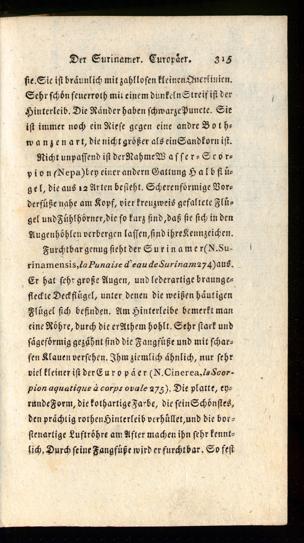 Der Surinamer. Europäer. 315
sie. Sie ist bräunlich mit zahllosen kleinen Querlinien.
Sehr schön feuerroth mit einem dunkeln Streif ist der
Hinterleib. Die Ränder haben schwarze Puncte. Sie
ist immer noch ein Riese gegen eine andre Both-
wanzenart, die nicht größer als ein Sandkorn ist.
Nicht unpassend ist der Nahme Wasser-Scor-
pion (Nepa) bey einer andern Gattung Halbflü-
gel, die aus 12 Arten besteht. Scherenförmige Vor-
derfüße nahe am Kopf, vier kreuzweis gefaltete Flü-
gel und Fühlhörner, die so karz sind, daß sie sich in den
Augenhöhlen verbergen lassen, sind ihre Kennzeichen.
Furchtbar genug sieht der Surinamer (N. Su-
rinamensis, la Punaise d'eau de Surinam 274) aus.
Er hat sehr große Augen, und lederartige braunge-
fleckte Deckflügel, unter denen die weißen häutigen
Flügel sich befinden. Am Hinterleibe bemerkt man
eine Röhre, durch die er Athem hohlt. Sehr stark und
sägeförmig gezähnt sind die Fangfüße und mit schar-
fen Klauen versehen. Ihm ziemlich ähnlich, nur sehr
viel kleiner ist der Europäer (N. Cinerea, le Scor-
pion aquatique à corps ovale 275). Die platte, ey-
runde Form, die kothartige Farbe, die sein Schönstes,
den prächtig rothen Hinterleib verhüllet, und die bor-
stenartige Luftröhre am After machen ihn sehr kennt-
lich. Durch seine Fangfüße wird er furchtbar. So fest